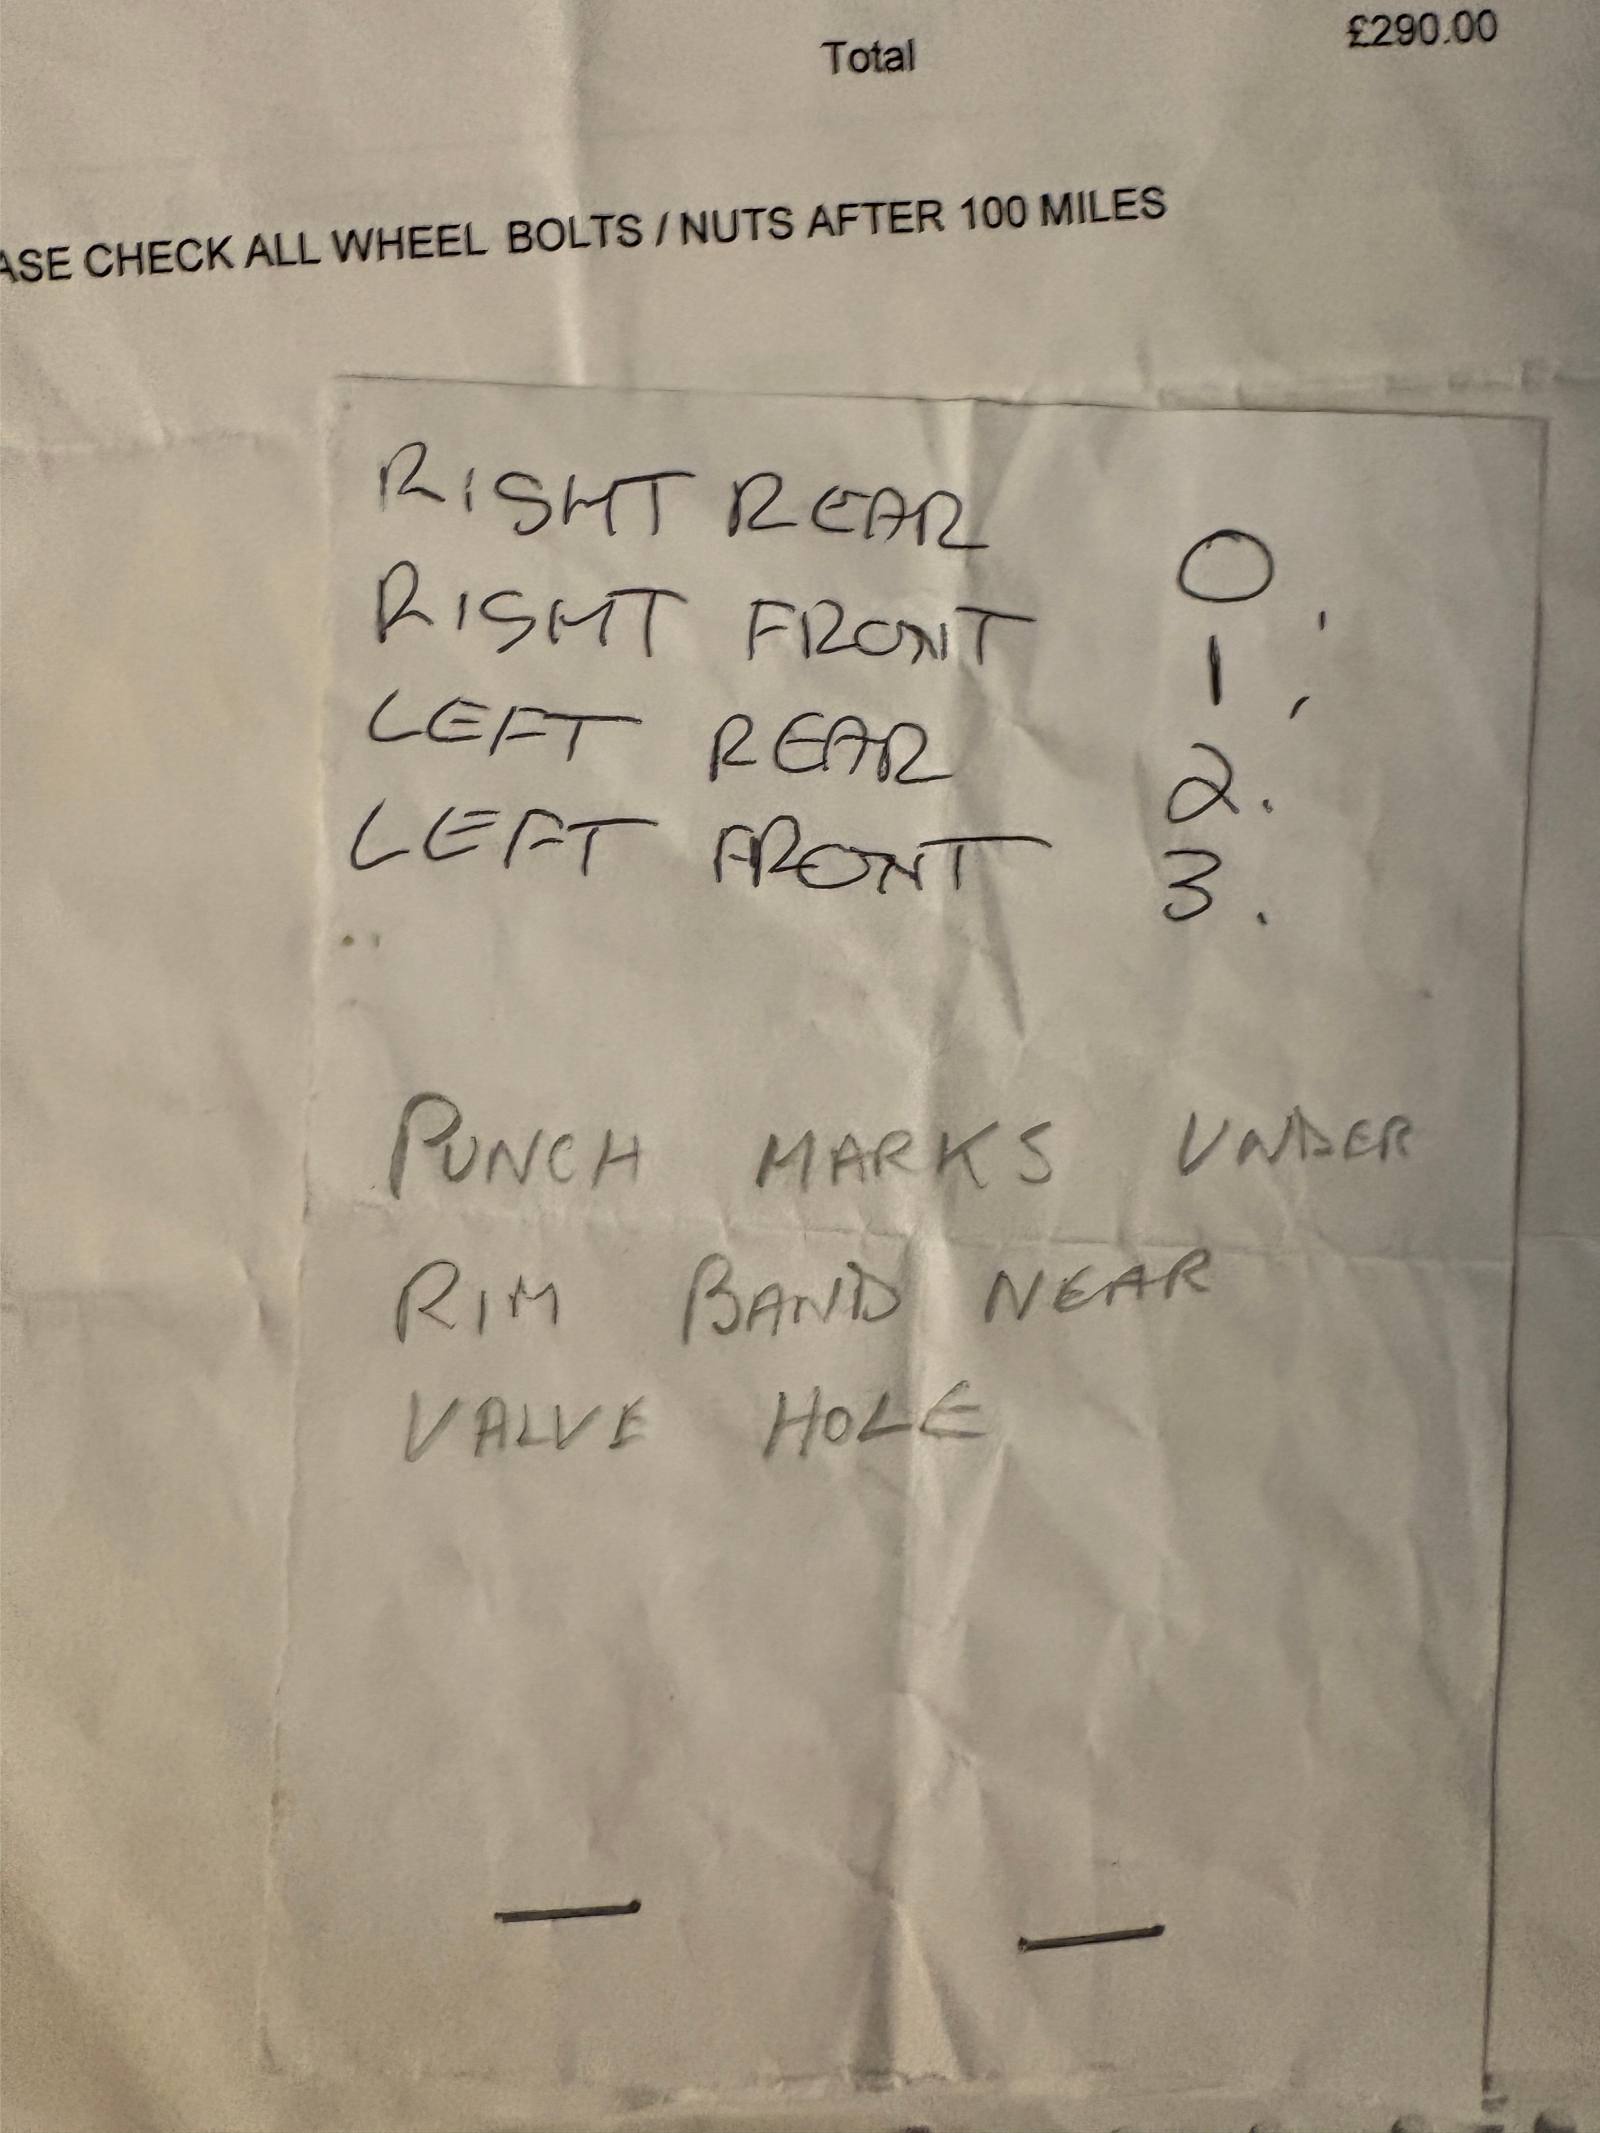 Total £290.00
ASE CHECK ALL WHEEL BOLTS / NUTS AFTER 100 MILES
RIGHT REAR 0
RIGHT FRONT 1
LEFT REAR 2.
LEFT FRONT 3.
PUNCH MARKS UNDER
RIM BAND NEAR
VALVE HOLE